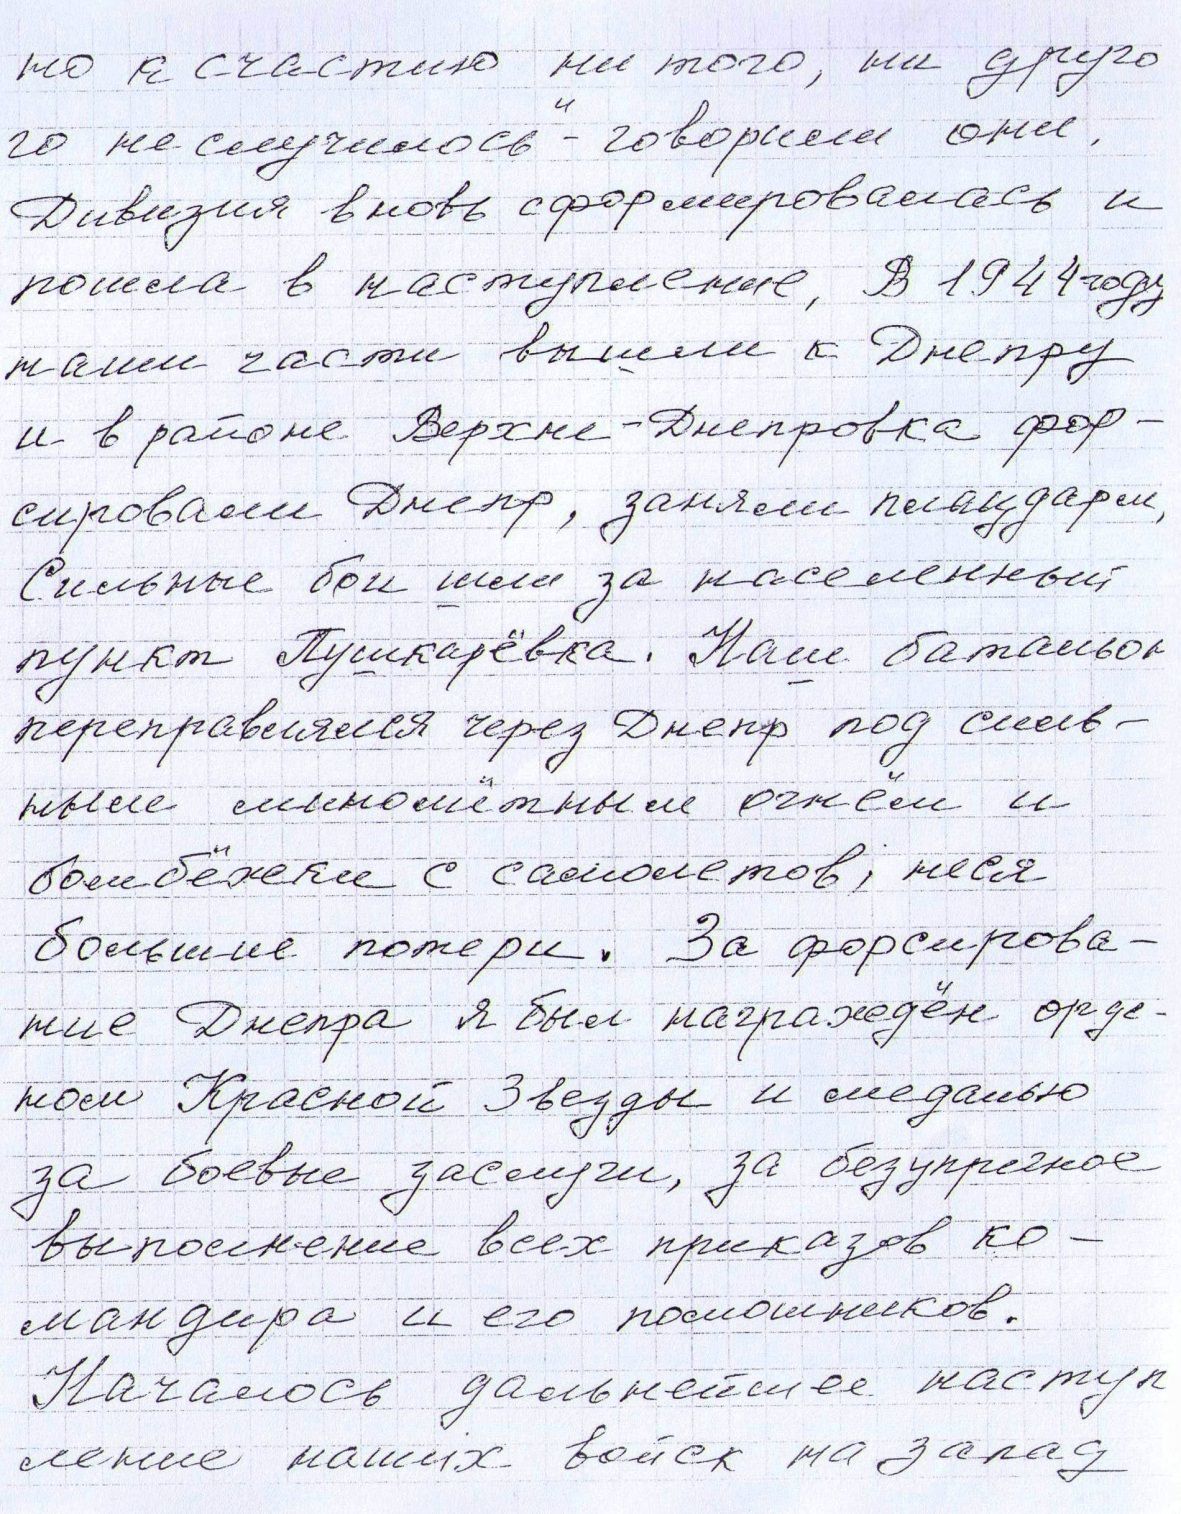 но к счастию ни того, ни друго
го не случилось" - говорили они.
Дивизия вновь сформировалась и
пошла в наступление, В 1944 году
наши части вышли к Днепру
и в районе Верхне-Днепровка фор-
сировали Днепр, заняли плацдарм,
Сильные бои шли за населенный
пункт Пушкарёвка. Наш батальон
переправлялся через Днепр под силь-
ным миномётным огнём и
бомбёжки с самолетов, неся
большие потери. За форсирова-
ние Днепра я был награждён орде-
ном Красной Звезды и медалью
за боевые заслуги, за безупречное
выполнение всех приказов ко-
мандира и его помошников.
Началось дальнейшее наступ
ление наших войск на запад